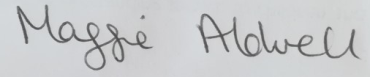 Maggie Aldwell